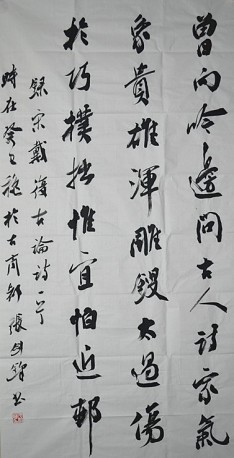 曾向吟邊問古人詩家氣
象貴雄渾雕鎪太過傷
於巧樸拙惟宜怕近邨
録宋戴復古論詩
時在癸巳穐於古商都張書